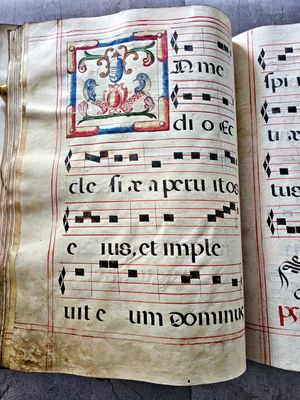 IN me
di o Ec
cle siæ a peru it os
e ius, et imple
uit e um Dominus
spi